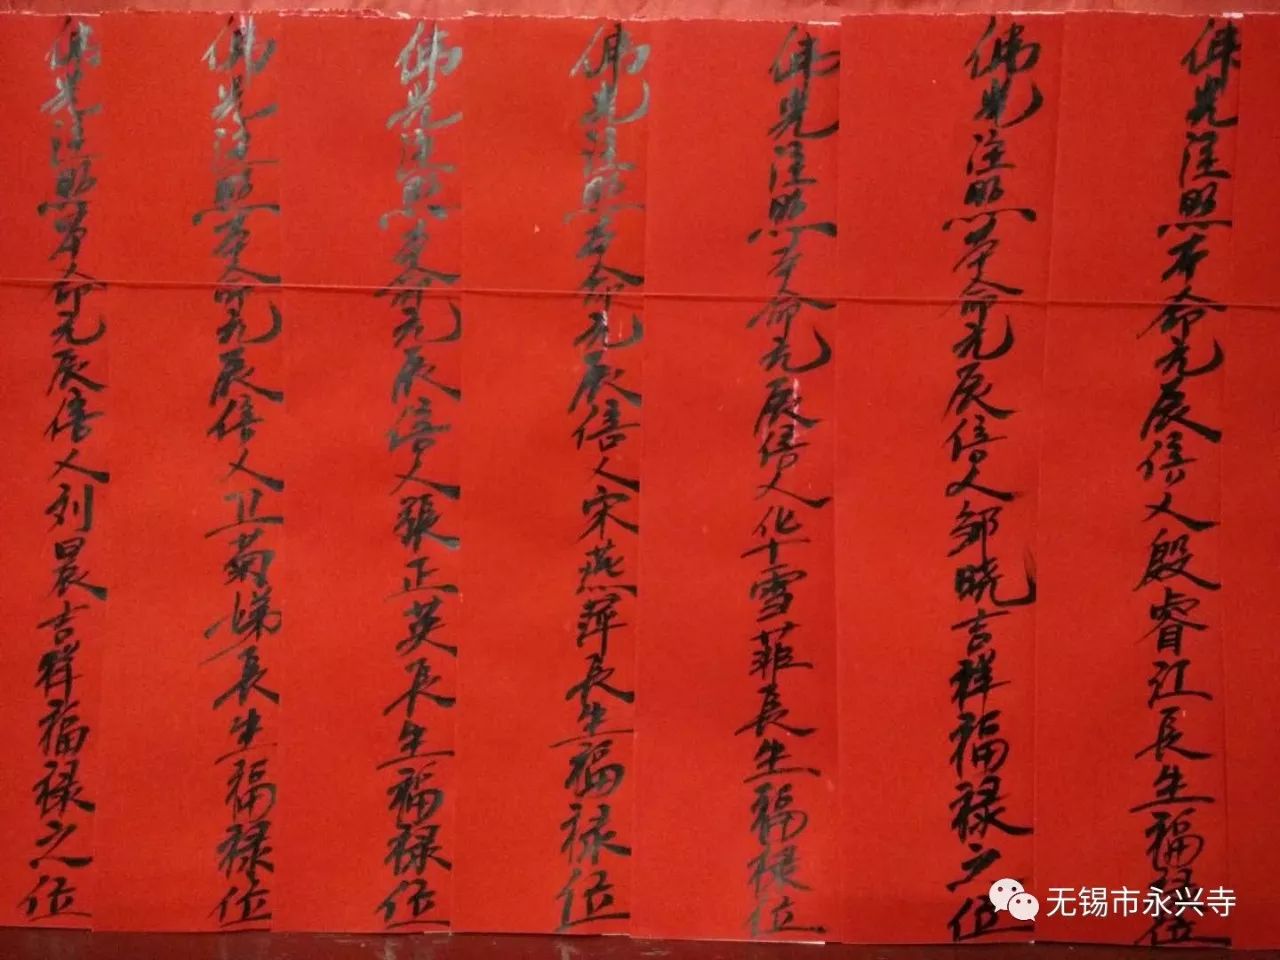 佛光注照本命元辰信人殷睿江長生福禄位
佛光注照本命元辰信人邹晓吉祥福禄之位
佛光注照本命元辰信人华雪菲長生福禄位
佛光注照本命元辰信人宋燕萍長生福禄位
佛光注照本命元辰信人張正英長生福禄位
佛光注照本命元辰信人卫菊娣長生福禄位
佛光注照本命元辰信人列晨吉祥福禄之位
无锡市永兴寺